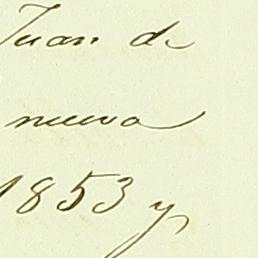 Juan de
nueva
1853 y